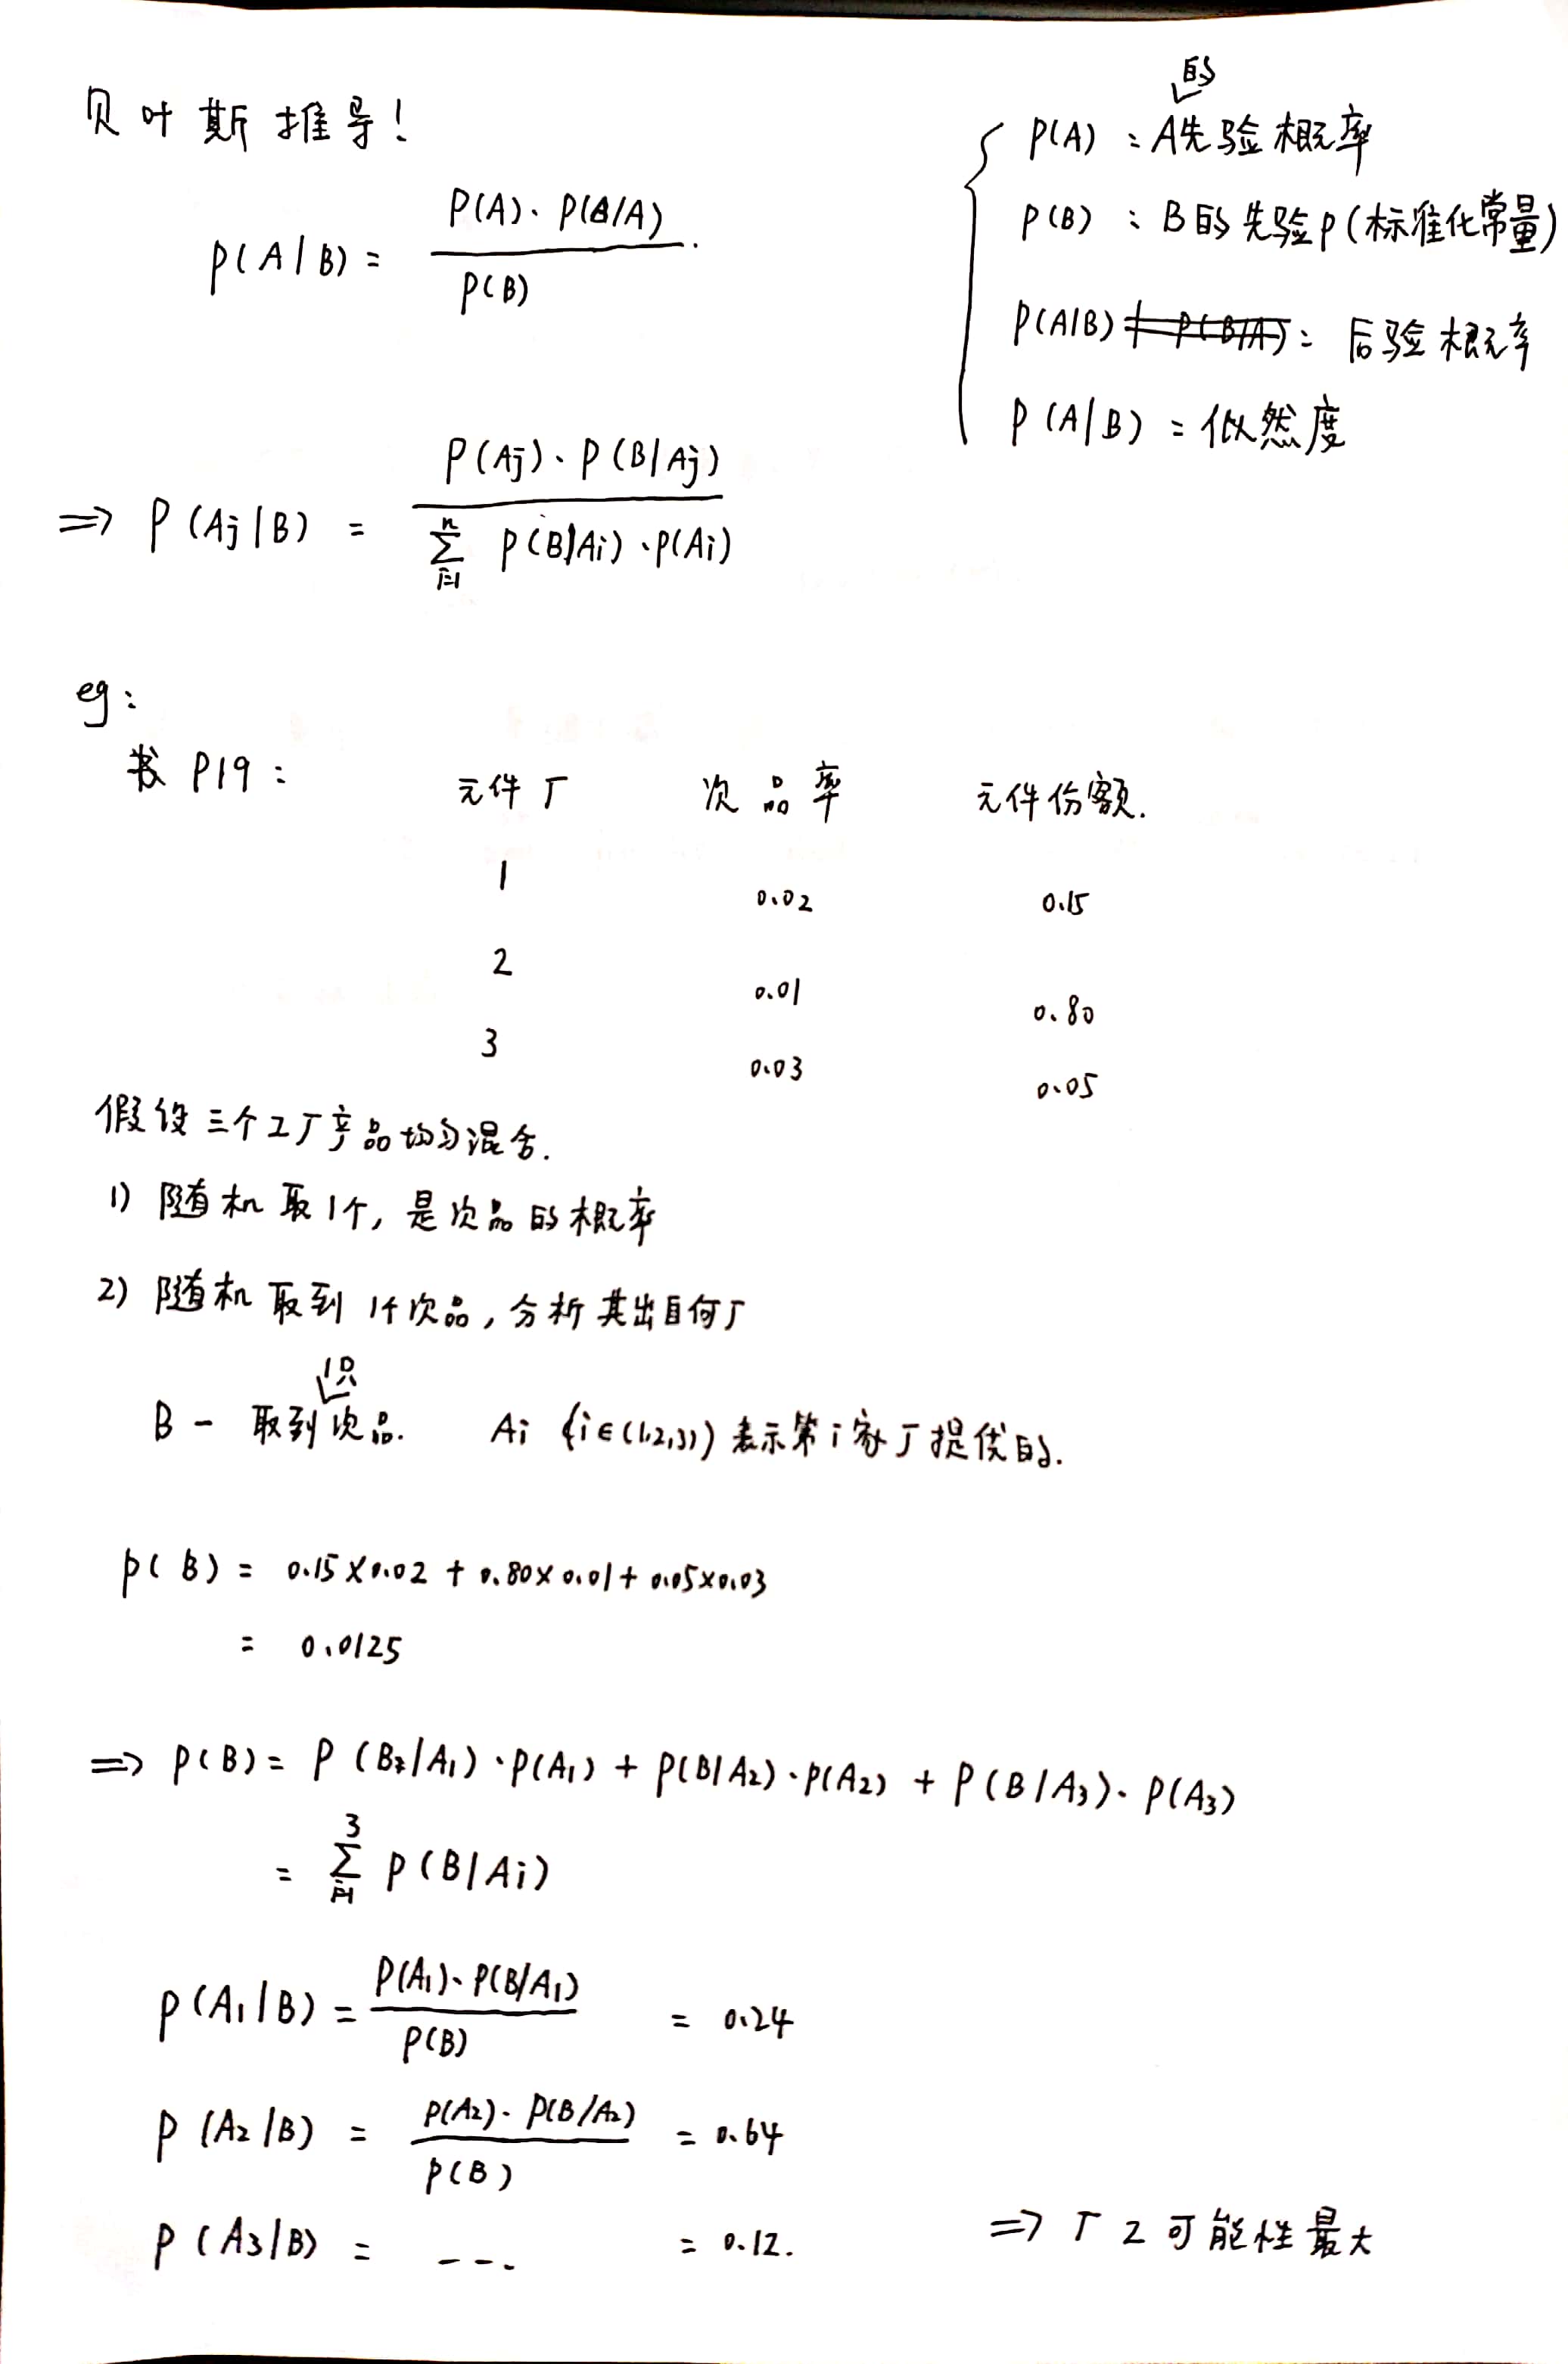 贝叶斯推导!
P(A|B) = P(A)·P(B|A) / P(B).
P(A):A的先验概率
P(B):B的先验P(标准化常量)
P(A|B):后验概率
P(A|B):似然度
⇒ P(Aj|B) = P(Aj)·P(B|Aj) / ∑_{i=1}^{n} P(B|Ai)·P(Ai)
eg:
书 P19: 元件厂 次品率 元件份额.
1 0.02 0.15
2 0.01 0.80
3 0.03 0.05
假设三个工厂产品均匀混合.
1) 随机取1个, 是次品的概率
2) 随机取到1个次品, 分析其出自何厂
B - 取到1只次品. Ai (i∈(1,2,3)) 表示第i家厂提供的.
P(B) = 0.15×0.02 + 0.80×0.01 + 0.05×0.03
= 0.0125
⇒ P(B) = P(B|A1)·P(A1) + P(B|A2)·P(A2) + P(B|A3)·P(A3)
= ∑_{i=1}^{3} P(B|Ai)
P(A1|B) = P(A1)·P(B|A1) / P(B) = 0.24
P(A2|B) = P(A2)·P(B|A2) / P(B) = 0.64
P(A3|B) = --- = 0.12.
⇒ 厂2可能性最大